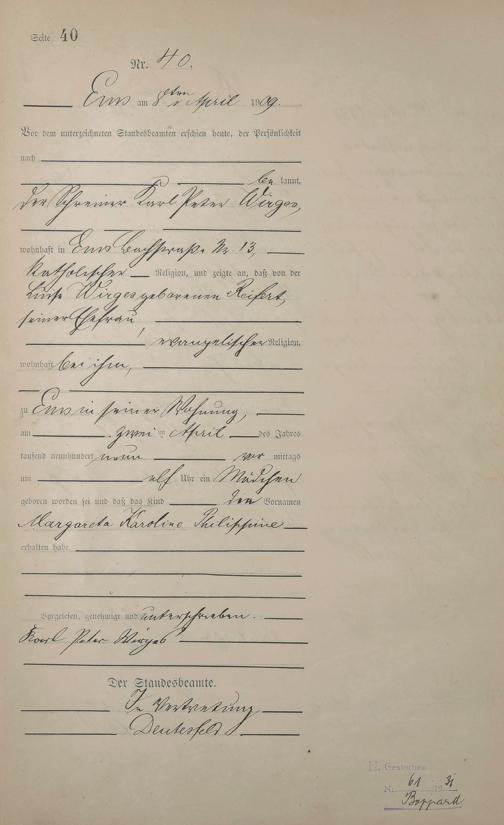 Seite 40
Nr. 40.
Ems am 8ten April 1909.
Vor dem unterzeichneten Standesbeamten erschien heute, der Persönlichkeit
nach
bekannt,
der Schreiner Karl Peter Wirges,
wohnhaft in Ems Bachstraße Nr. 13,
katholischer Religion, und zeigte an, daß von der
Luise Wirges geborenen Reifert,
seiner Ehefrau,
evangelischer Religion,
wohnhaft bei ihm,
zu Ems in seiner Wohnung,
am zwei ten April des Jahres
tausend neunhundert neun vor mittags
um elf Uhr ein Mädchen
geboren worden sei und daß das Kind den Vornamen
Margareta Karoline Philippine
erhalten habe.
Vorgelesen, genehmigt und unterschrieben.
Karl Peter Wirges
Der Standesbeamte.
In Vertretung
Deutesfeld
Gestorben
Nr. 61 19
Boppard